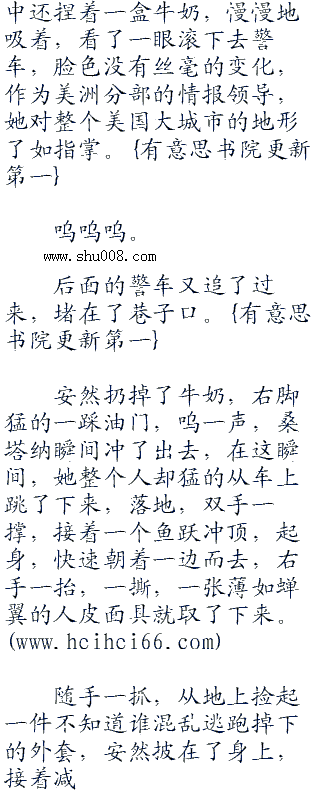 中还捏着一盒牛奶，慢慢地
吸着，看了一眼滚下去警
车，脸色没有丝毫的变化，
作为美洲分部的情报领导，
她对整个美国大城市的地形
了如指掌。{有意思书院更新
第一}
呜呜呜。
www.shu008.com
后面的警车又追了过
来，堵在了巷子口。{有意思
书院更新第一}
安然扔掉了牛奶，右脚
猛的一踩油门，呜一声，桑
塔纳瞬间冲了出去，在这瞬
间，她整个人却猛的从车上
跳了下来，落地，双手一
撑，接着一个鱼跃冲顶，起
身，快速朝着一边而去，右
手一抬，一撕，一张薄如蝉
翼的人皮面具就取了下来。
(www.hcihci66.com)
随手一抓，从地上捡起
一件不知道谁混乱逃跑掉下
的外套，安然披在了身上，
接着减